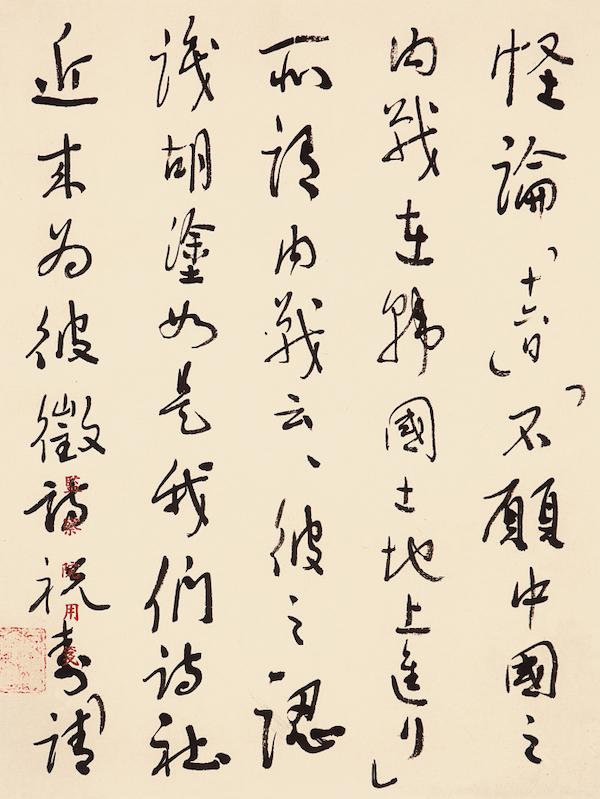 怪論「十六日」「不願中國之
內戰在韓國土地上進行」
所謂內戰云、彼之認
識胡塗如是我們詩社
近來為彼徵詩祝壽請
監察院用箋